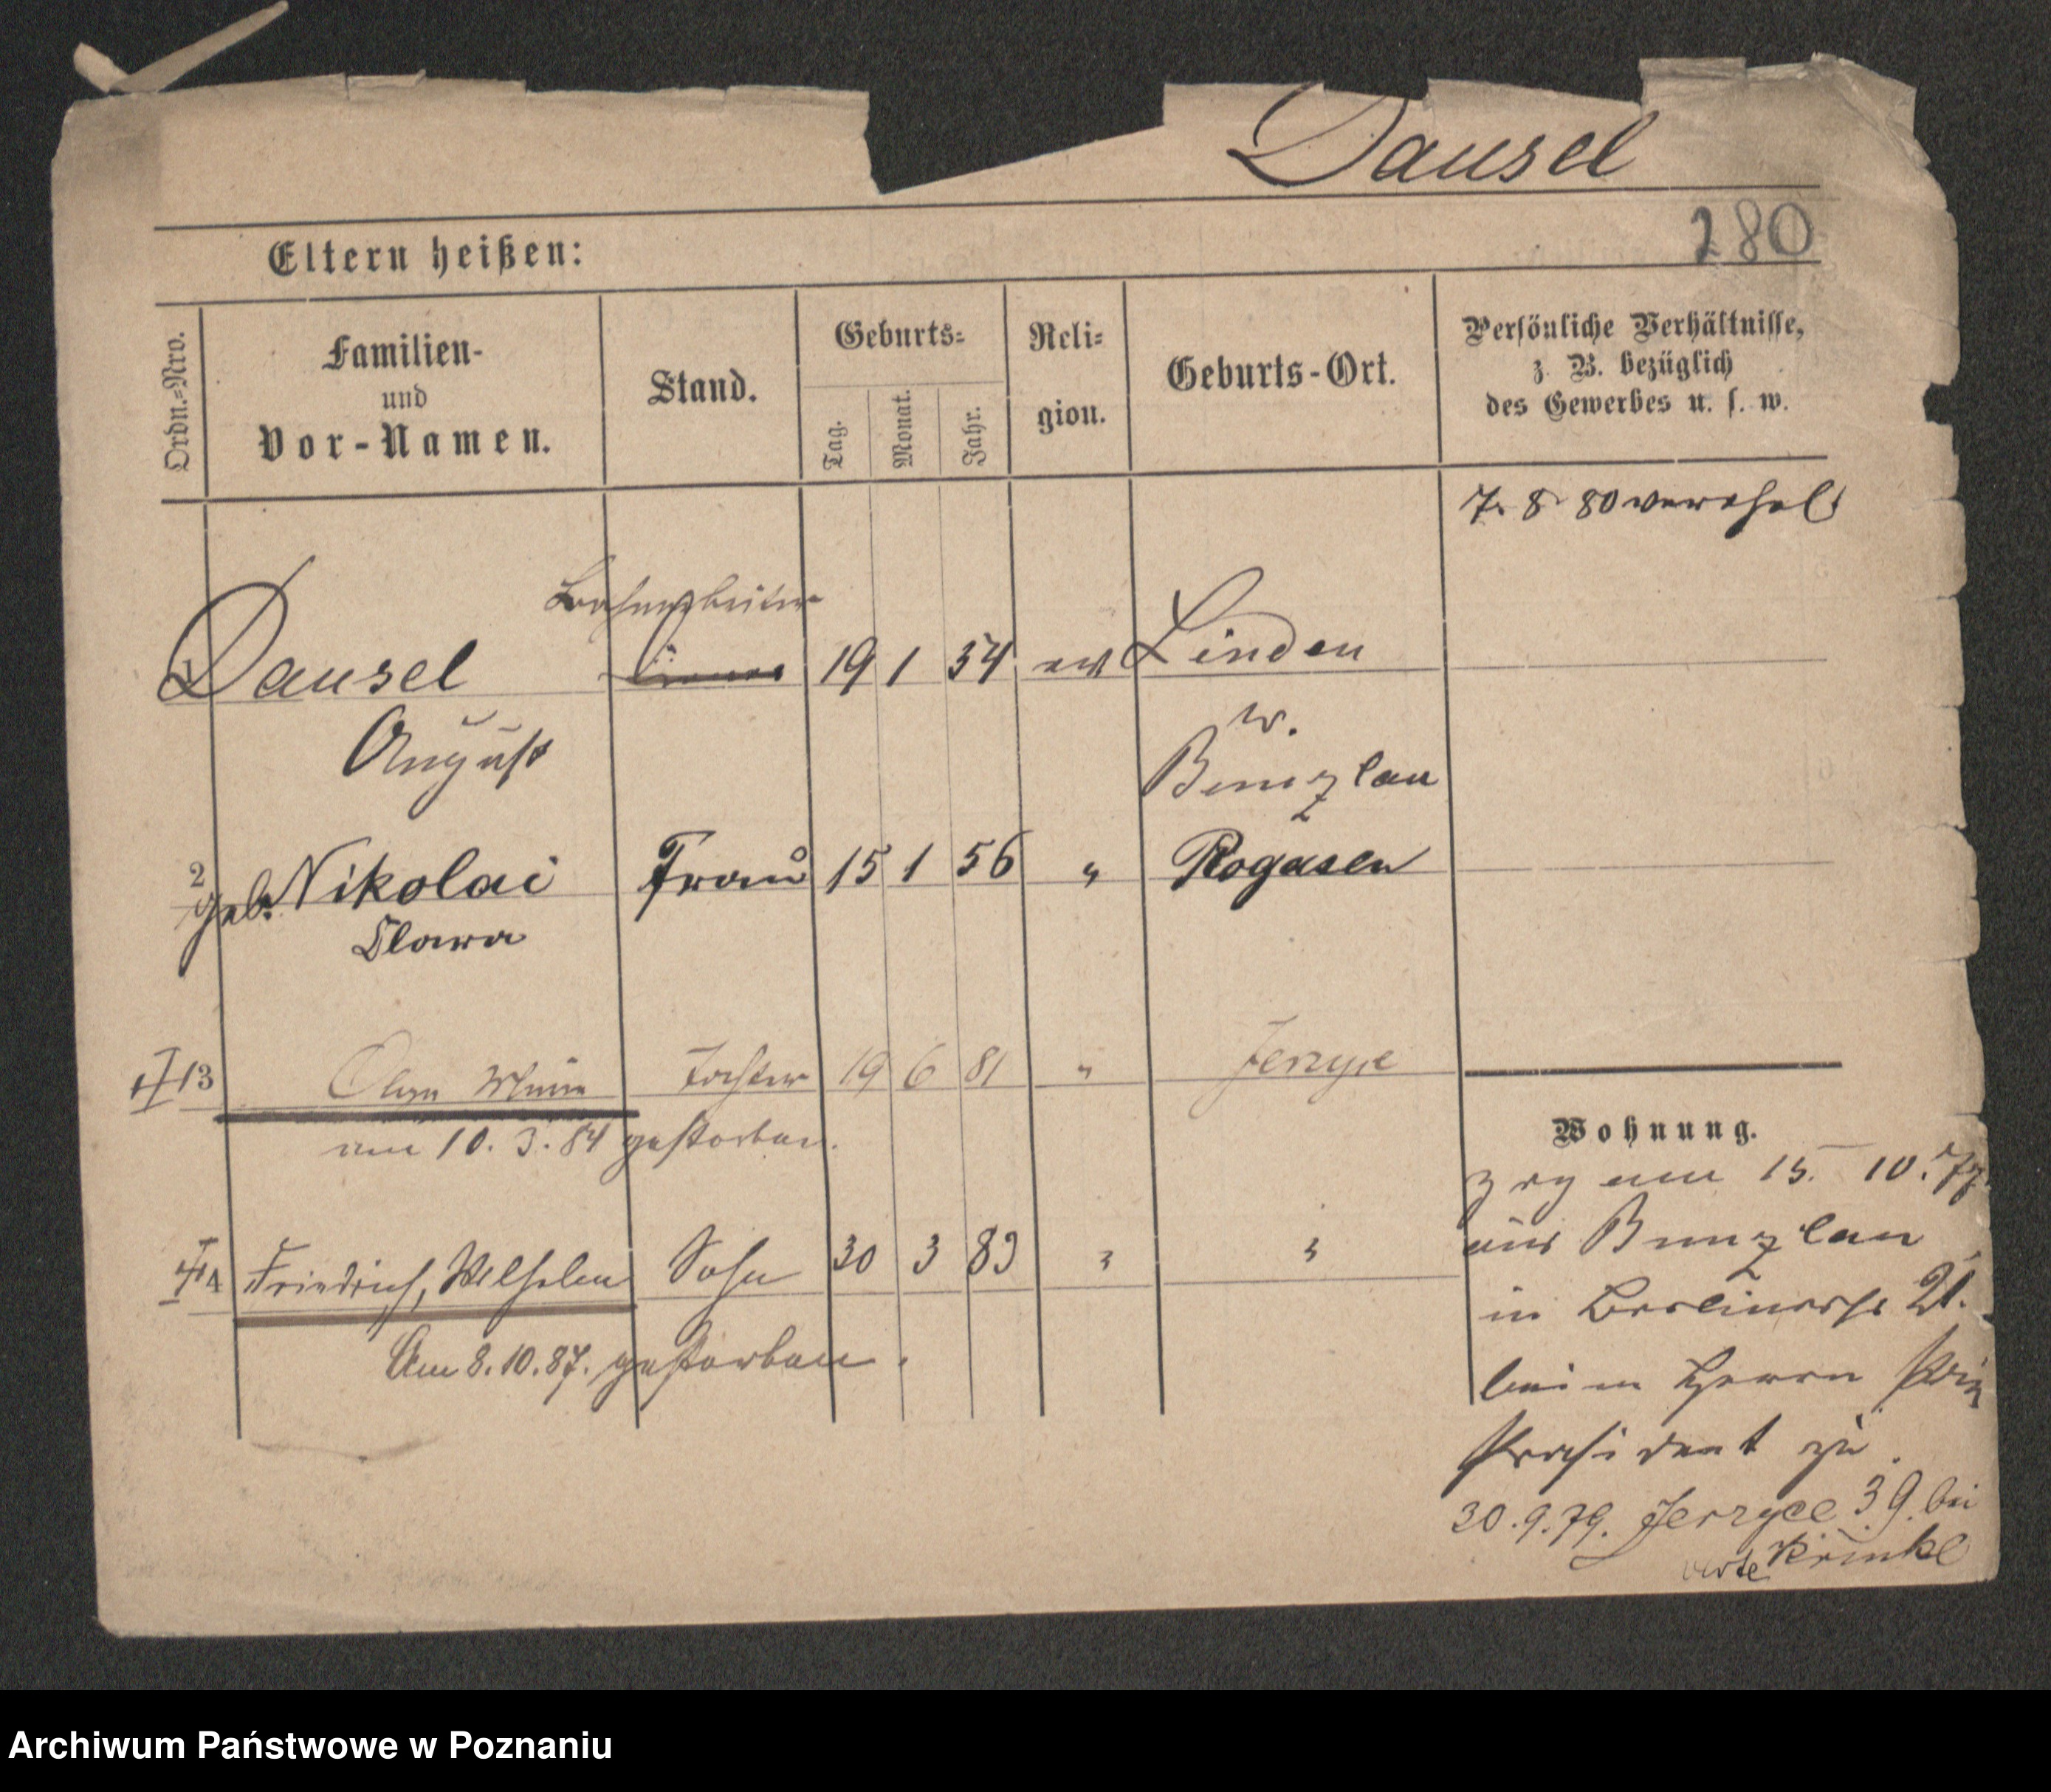 Dausel
280
Eltern heißen:
Ordn.-Nro.
Familien-
und
Vor-Namen.
Stand.
Geburts-
Tag.
Monat.
Jahr.
Reli-
gion.
Geburts-Ort.
Persönliche Verhältnisse,
z. B. bezüglich
des Gewerbes u. s. w.
7. 8. 80 verehel
1 Dausel 19 1 54 ev Linden
August
Kr.
Bunzlau
2 geb. Nikolai Frau 15 1 56 " Rogasen
Clara
3 Tochter 19 6 81 " Jerzyce
am 10. 3. 84 gestorben.
4 Friedrich, Wilhelm Sohn 30 3 83 " "
Am 8.10.87. gestorben.
Wohnung.
zog am 15. 10. 77
aus Bunzlau
in Berlinerstr 21.
beim Herrn
Präsident zu
30.9.79. Jerzyce 39. bei
Krinke
verte
Archiwum Państwowe w Poznaniu